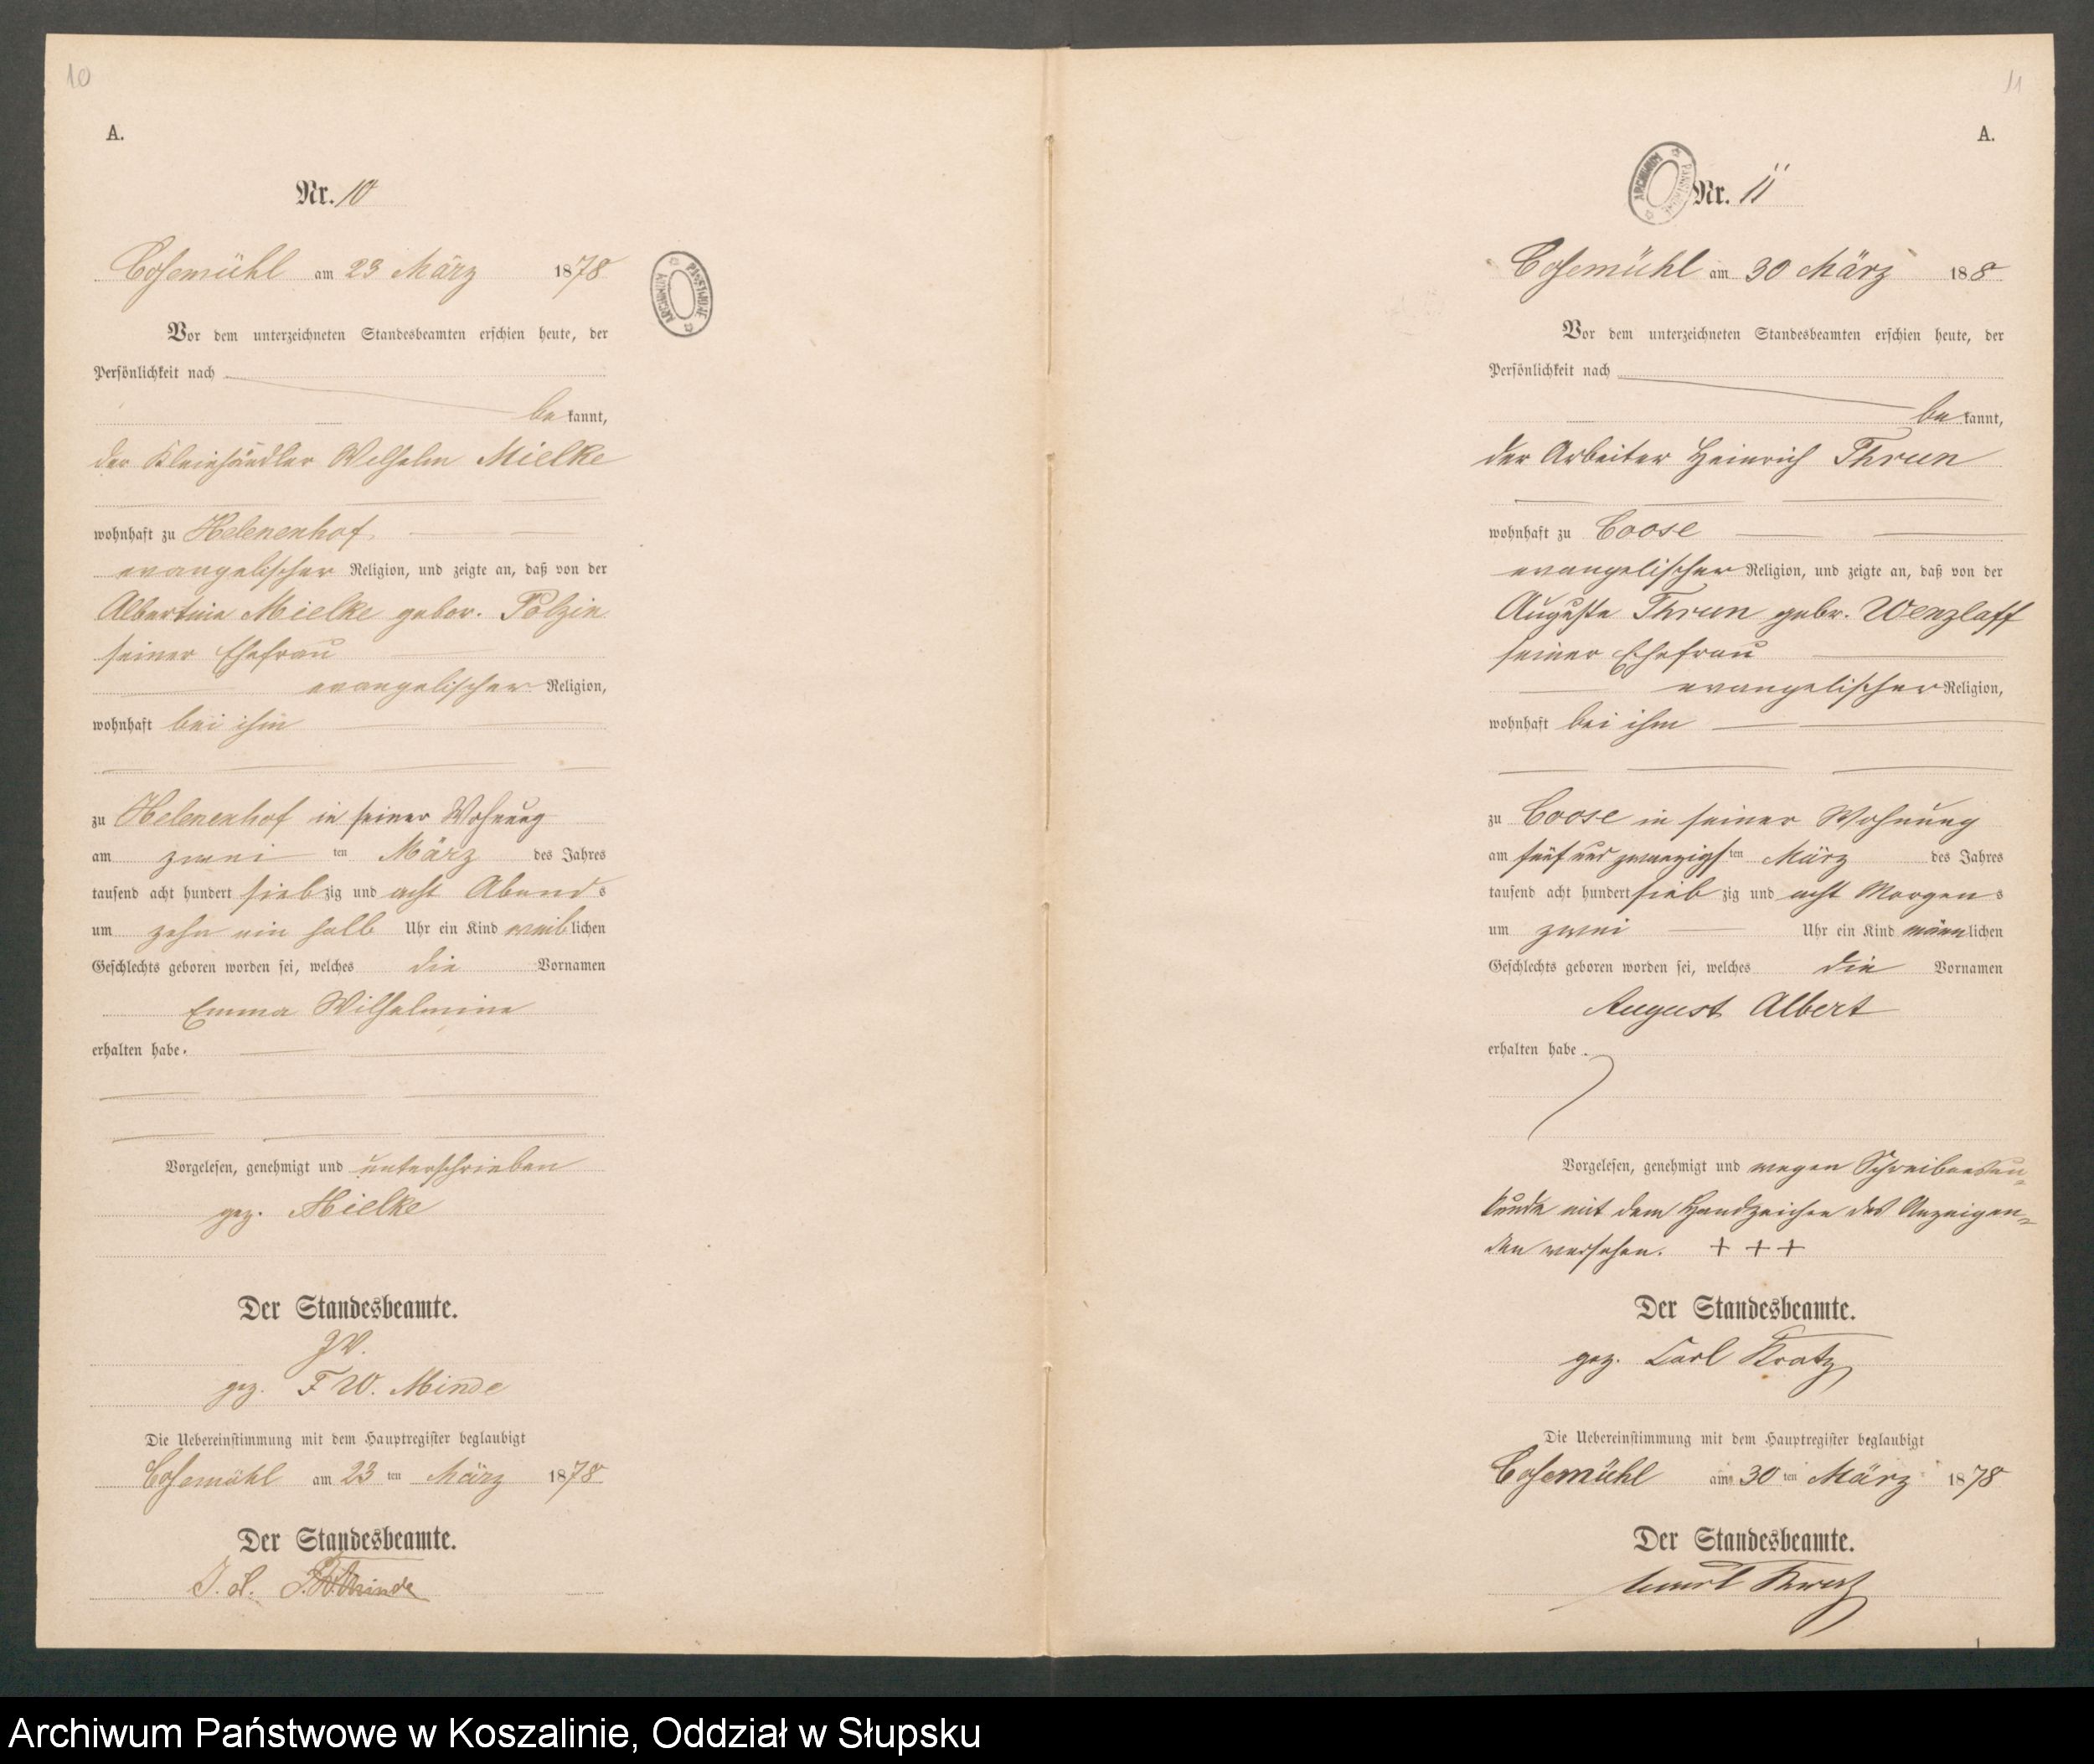 10
A.
Nr. 10
Cosemühl am 23 März 1878
ARCHIWUM PAŃSTWOWE
Vor dem unterzeichneten Standesbeamten erschien heute, der
Persönlichkeit nach
bekannt,
der Kleinhändler Wilhelm Mielke
wohnhaft zu Helenenhof
evangelischer Religion, und zeigte an, daß von der
Albertine Mielke gebor. Polzin
seiner Ehefrau
evangelischer Religion,
wohnhaft bei ihm
zu Helenenhof in seiner Wohnung
am zwei ten März des Jahres
tausend acht hundert siebzig und acht Abends
um zehn ein halb Uhr ein Kind weiblichen
Geschlechts geboren worden sei, welches die Vornamen
Emma Wilhelmine
erhalten habe.
Vorgelesen, genehmigt und unterschrieben
gez. Mielke
Der Standesbeamte.
JV.
gez. F W. Minde
Die Uebereinstimmung mit dem Hauptregister beglaubigt
Cosemühl am 23 ten März 1878
Der Standesbeamte.
Minde
11
A.
ARCHIWUM PAŃSTWOWE
Nr. 11
Cosemühl am 30 März 188
Vor dem unterzeichneten Standesbeamten erschien heute, der
Persönlichkeit nach
bekannt,
der Arbeiter Heinrich Thrun
wohnhaft zu Coose
evangelischer Religion, und zeigte an, daß von der
Auguste Thrun gebr. Wenzlaff
seiner Ehefrau
evangelischer Religion,
wohnhaft bei ihm
zu Coose in seiner Wohnung
am fünf und zwanzigsten März des Jahres
tausend acht hundert siebzig und acht Morgens
um zwei Uhr ein Kind männlichen
Geschlechts geboren worden sei, welches die Vornamen
August Albert
erhalten habe.
Vorgelesen, genehmigt und wegen Schreibensun-
kunde mit dem Handzeichen des Anzeigen-
den versehen. + + +
Der Standesbeamte.
gez. Carl Kratz
Die Uebereinstimmung mit dem Hauptregister beglaubigt
Cosemühl am 30 ten März 1878
Der Standesbeamte.
Carl Kratz
Archiwum Państwowe w Koszalinie, Oddział w Słupsku